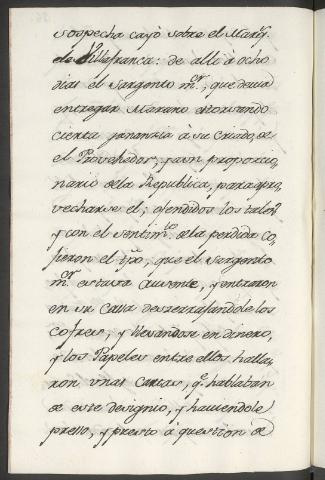 sospecha cayò sobre el Marq.s
de Villafranca: de alli à ocho
dias el Sargento m.or, que devia
entregar Murano
cierta ganancia à su Criado, de
el Provehedor, y aun proporcio,
nario dela Republica, para apro,
vecharse el; ofendidos los tales
y con el sentim.to dela perdida co,
jieron el tpo, que el Sargento
m.or estava Ausente, y entraron
en su Casa deserrajandole los
cofres, y llevandose en dinero,
y los Papeles entre ellos halla,
ron unas Cartas, q.e hablaban
de este designio, y haviendole
presso, y puesto à question de